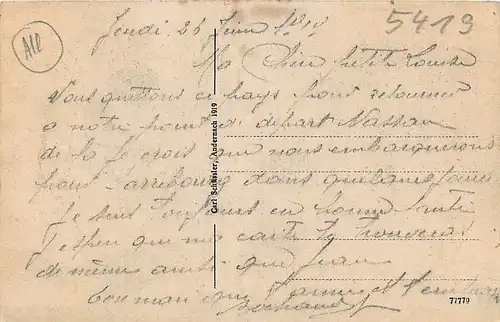 5419
All
Jeudi 26 Juin 1919
Ma Chère petite Louise
Vous quittons ce pays pour retourner
a notre point de départ Nassau
de la Je crois que nous embarquerons
pour dans quelques jours
Je suis toujours en bonne santé
J'espère que ma carte te trouveras
de même ainsi que Jean
Ton mari qui t'aimes et t'embrasse
Carl Schüssler, Andernach 1919
77779